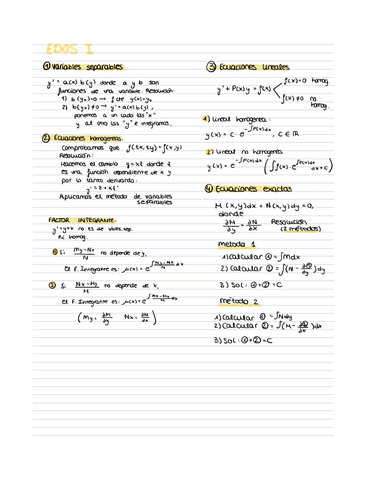 EDOS I
① Variables separables
y' = a(x) b(y) donde a y b son
funciones de una variable. Resolución:
1) b(y₀)=0 → ∫ de y(x)=y₀
2) b(y₀)≠0 → y'=a(x) b(y),
ponemos a un lado las "x"
y al otro las "y" e integramos.
② Ecuaciones homogéneas
Comprobamos que f(tx,ty)=f(x,y)
Resolución:
Hacemos el cambio y=xz donde z
es una función dependiente de x y
por lo tanto derivando:
y'=z+xz'
Aplicamos el método de variables
separables
FACTOR INTEGRANTE:
no es de vables sep.
ni homog.
① Si My-Nx / N no depende de y,
el F. Integrante es: μ(x)=e^∫ My-Nx / N dx
② Si Nx-My / M no depende de x,
el F. Integrante es: μ(x)=e^∫ Nx-My / M dx
(My = ∂M/∂y Nx = ∂N/∂x)
③ Ecuaciones lineales
y'+P(x)y=f(x)
f(x)=0 homog.
f(x)≠0 no
homog.
1) Lineal homogenea:
y(x)=C·e^-∫P(x)dx, C∈ℝ
2) Lineal no homogenea
y(x)=e^-∫P(x)dx (∫f(x)·e^∫P(x)dx dx+c)
④ Ecuaciones exactas
M(x,y)dx+N(x,y)dy=0,
donde
∂M/∂y = ∂N/∂x Resolución
(2 métodos)
metodo 1
1) Calcular ①=∫Mdx
2) Calcular ②=∫(N-∂①/∂y)dy
3) Sol: ①+②=C
método 2
1) Calcular ①=∫Ndy
2) Calcular ②=∫(M-∂①/∂x)dx
3) Sol: ①+②=C